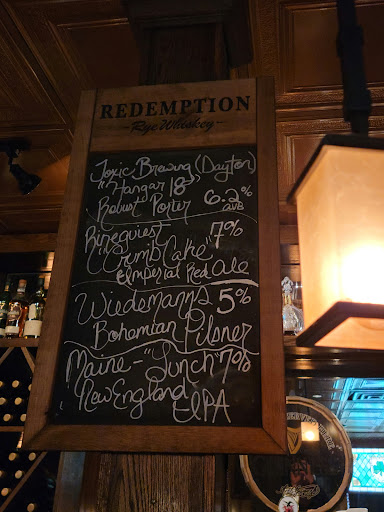 REDEMPTION
Rye Whiskey
Toxic Brewing (Dayton)
"Hangar 18"
Robust Porter 6.2% ABV
Rinegeist 7%
"Crumb Cake"
Imperial Red Ale
Wiedemann's 5%
Bohemian Pilsner
Maine - "Lunch" 7%
New England
IPA